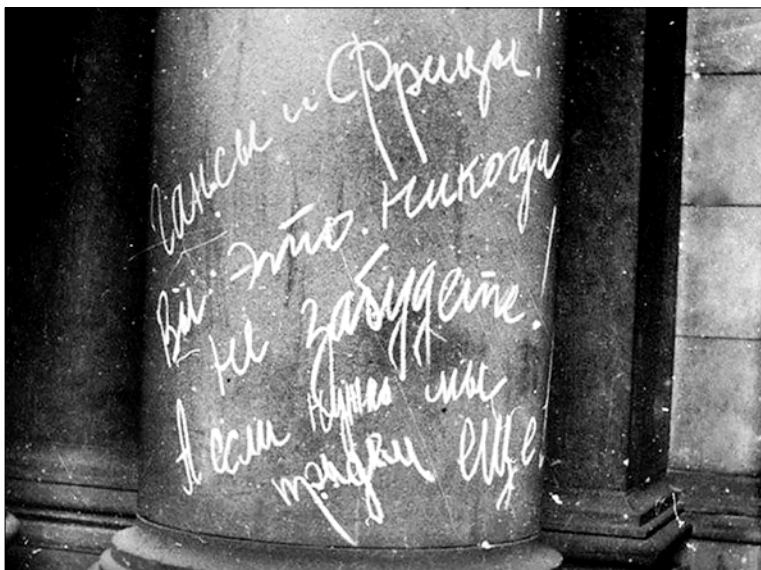 Гансы и Фрицы.
Вы это никогда
не забудете.
А если нужно мы
придем еще.